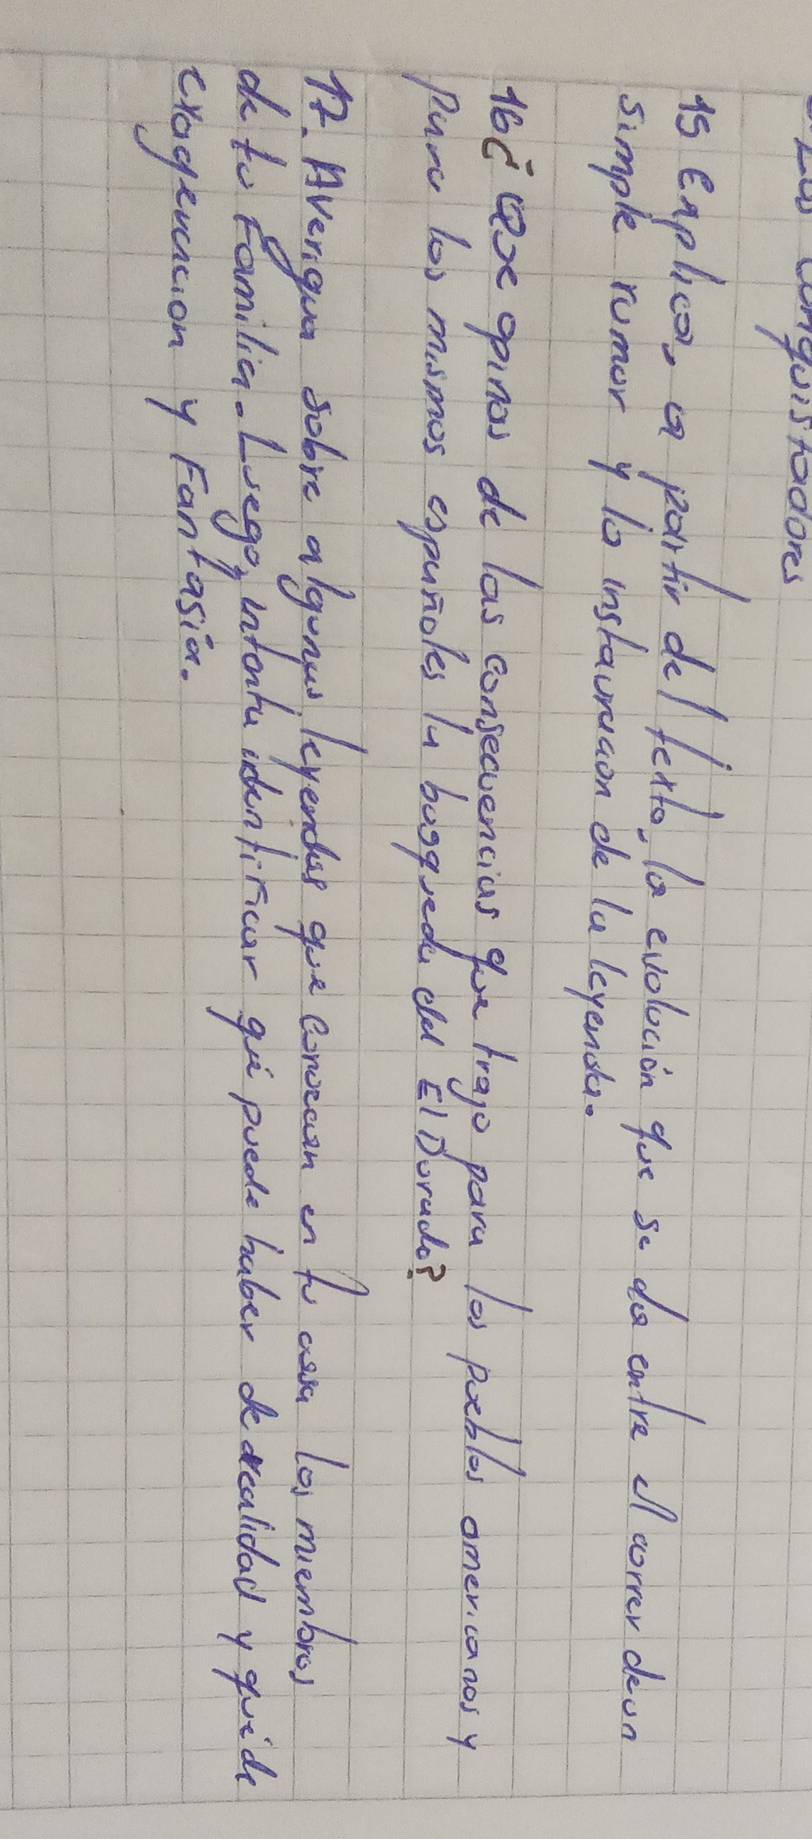 conquistadores
15 Explica, a partir del texto, la evolución que se da entre el correr de un
simple rumor y la instauracion de la leyenda.
16 ¿ Que opinas de las consecuencias que trajo para los pueblos americanos y
para los mismos españoles la busqueda del El Dorado?
17. Averigua sobre algunas leyendas que conozcan en tu casa los miembros
de tu Familia. Luego, intenta identificar qué puede haber de realidad y que de
exageracion y Fantasía.